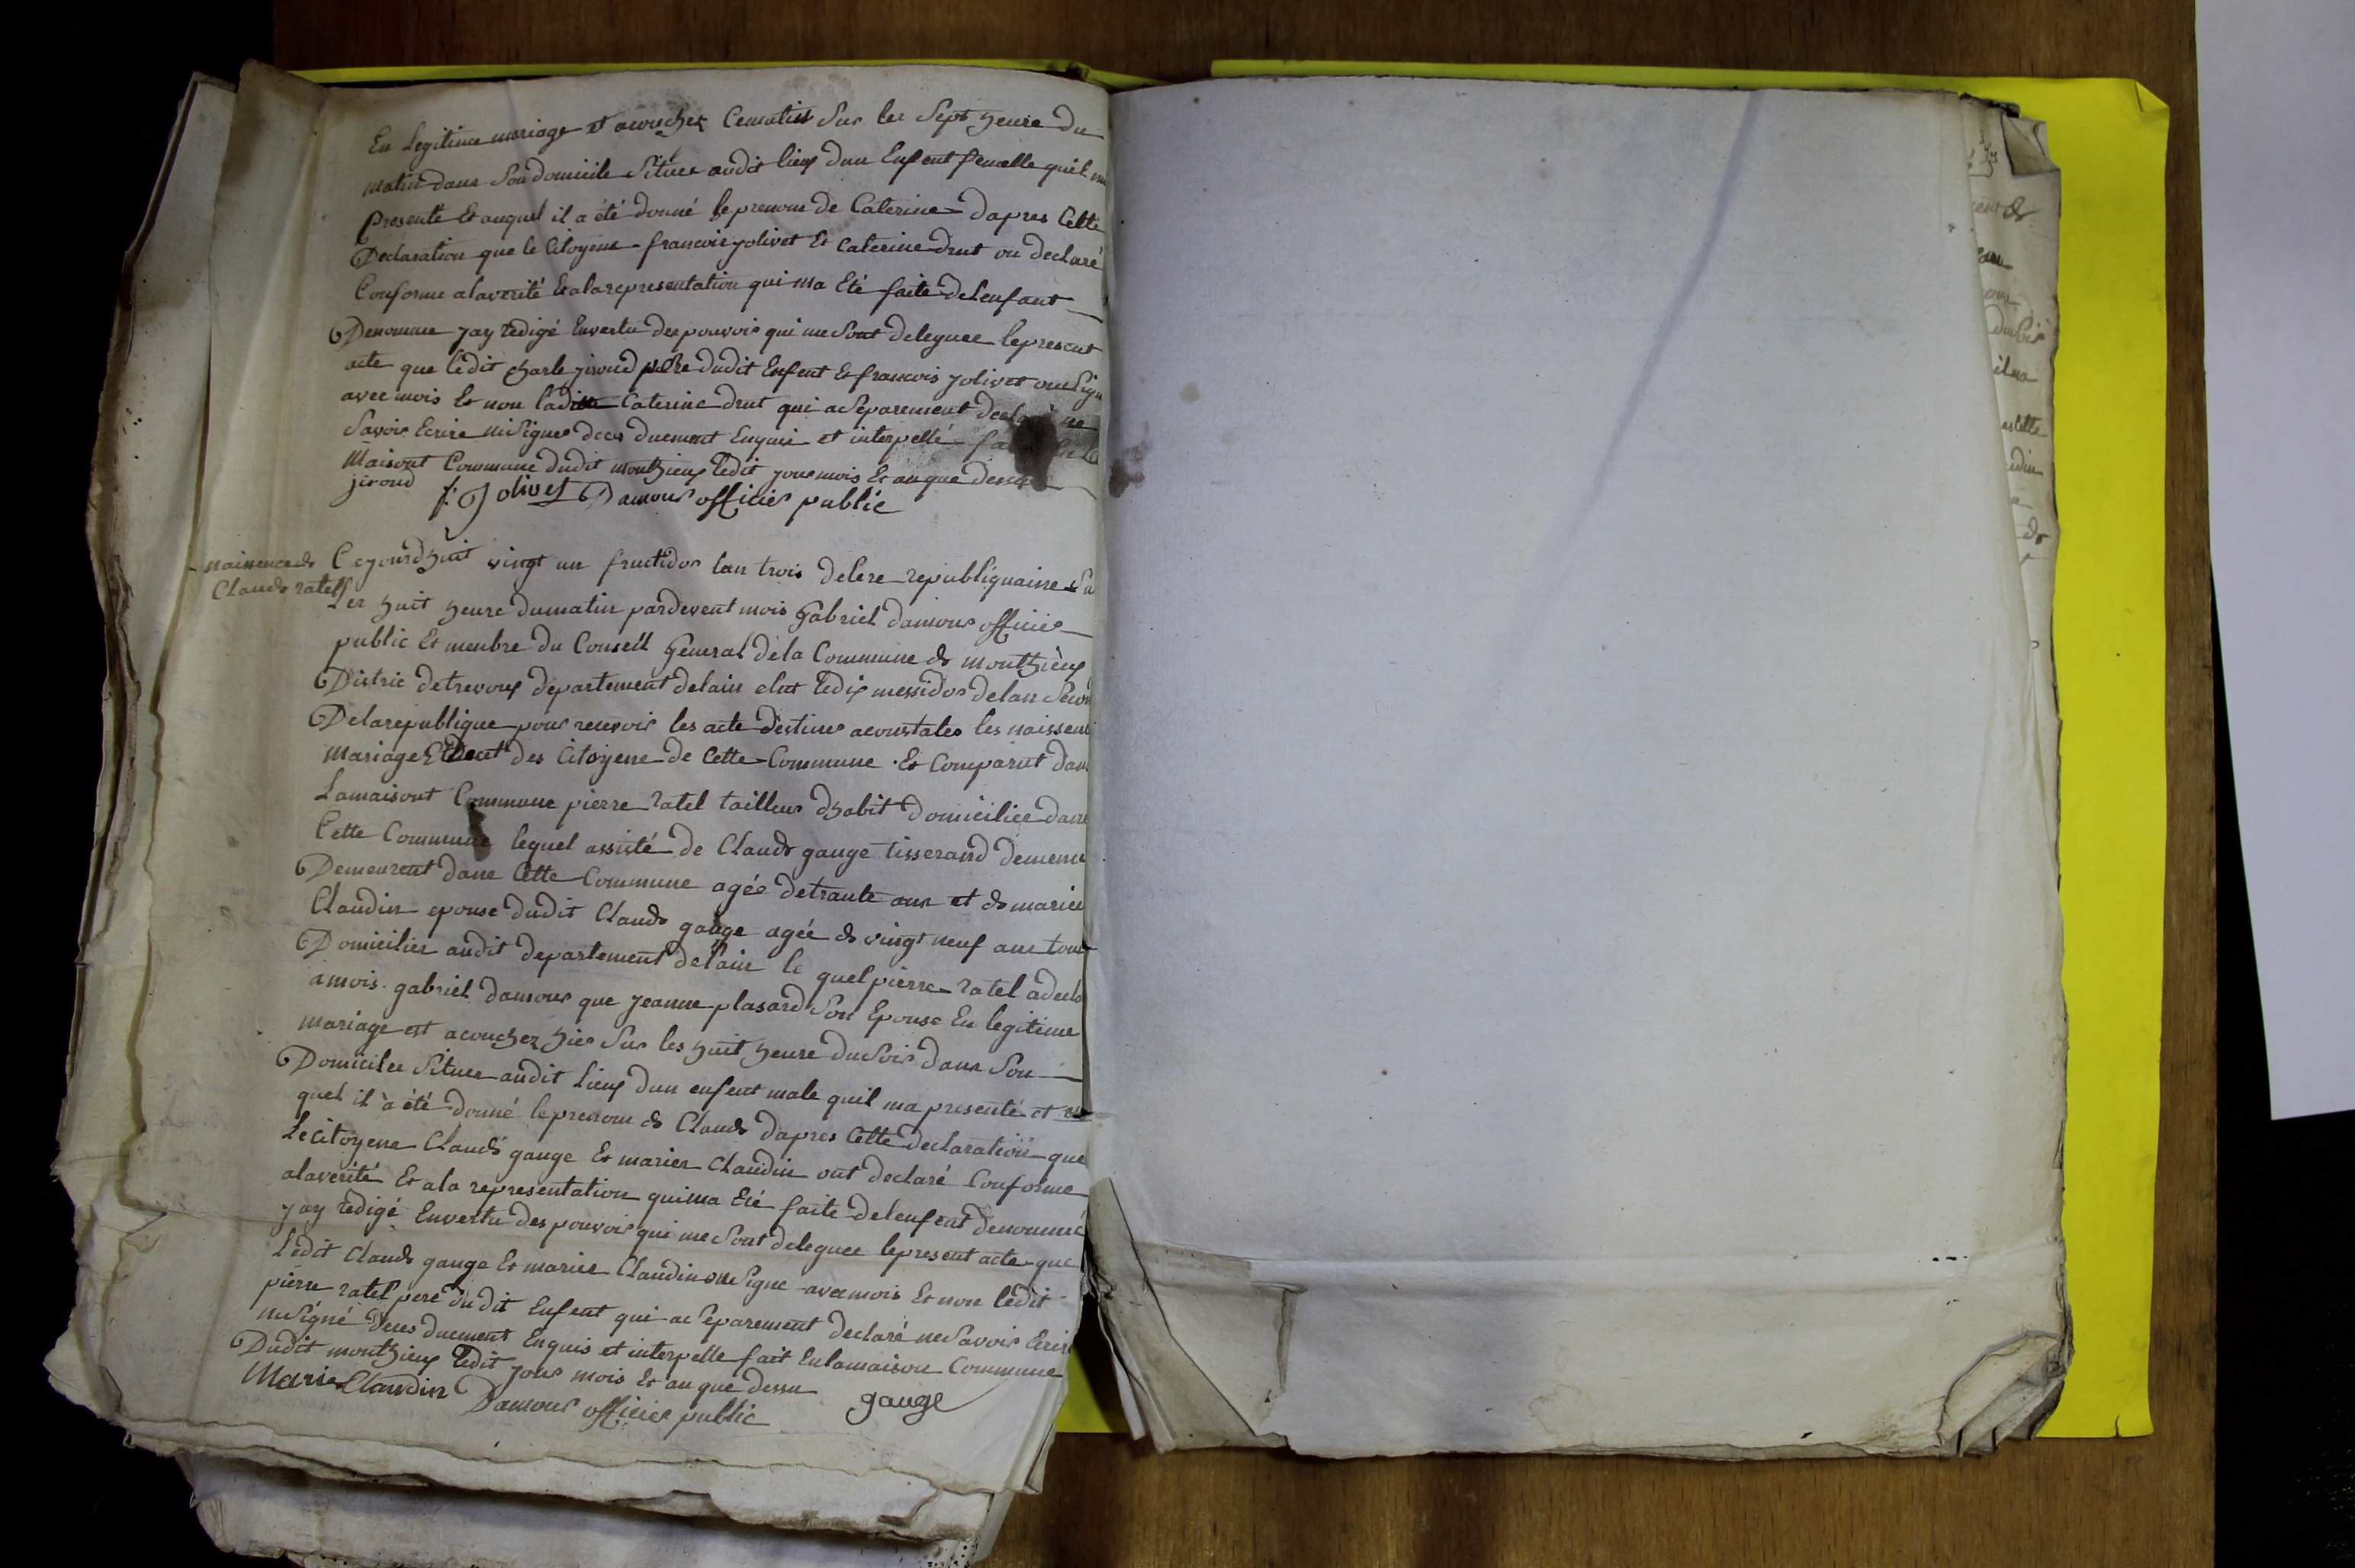 En Legitime mariage et acouchez Cematin Sur les Sept heure Du
matin dans Son domicile Situee audit lieux dun Enfent femelle quil ma
presenté Et auquel il a été donné le prenom de Caterine dapres Cette
Declaration que le Citoyens francois jolivet Et Caterine drut on declaré
Conforme alaverité Et alarepresentation qui ma Eté faite delenfant
Denomme jay redigé Envertu des pouvois qui me Sont deleguee lepresent
acte que ledit charle jiroud pere dudit Enfent Et francois jolivet on Signe
avec mois Et non ladite Caterine drut qui a Separement declaré ne
Savois Ecrire ni Signer deces duement Enquis et interpellé
Maisont Commune dudit monthieux ledit jour mois Et an que dessu
jiroud f: Jolivet Damour officier public
naissence de
Claude ratel
Cejourdhuit vingt un fructidor lan trois delere republiquaine Su
Les huit heure dumatin pardevent mois Gabriel damour officier
public Et menbre du Conseil General dela Commune de monthieux
Distric detrevoux departement delain elut ledix messidor delan Secon
Delarepublique pour recevoir les acte destines aconstates les naissen
mariage Et Deces des Citoyens de Cette Commune Et Comparut dans
Lamaisont Commune pierre ratel tailleur dhabit Domicilier dans
Cette Commune lequel assisté de Claude gauge tisserand
Demeurent dans Cette Commune agée detrante ans et de mariee
Claudin epouse dudit Claude gauge agée de vingt neuf ans tous
Domicilier audit departement delain le quel pierre ratel adecla
amois gabriel damour que jeanne plasard Son Epouse En legitime
mariage est acouchez hier Sur les huit heure du Soir dans Son
Domicilee Situee audit lieux dun enfent male quil ma presenté et au
quel il a été donné leprenom de Claude dapres Cette declaration que
Le citoyens Claude gauge Et mariee Claudin ont declaré Conforme
alaverité Et ala representation quima Eté faite delenfent denommé
jay redigé Envertu des pouvoir qui me Sont deleguee lepresent acte que
Ledit Claude gauge Et mariee Claudin on Signe avec mois Et non ledit
pierre ratel pere du dit Enfent qui a Separement declaré ne Savoir Ecrire
ni Signé deces duement Enquis et interpelle fait Enlamaison Commune
Dudit monthieux ledit jour mois Et an que dessu
Marie Claudin Damour officier public gauge